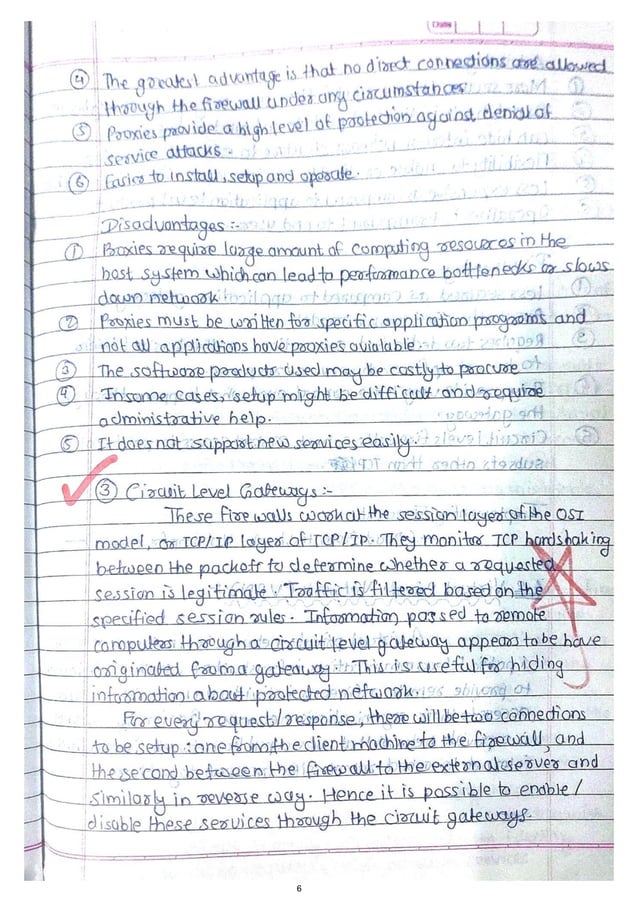 Date
④ The greatest advantage is that no direct connections are allowed
through the firewall under any circumstances
⑤ Proxies provide a high level of protection against denial of
service attacks.
⑥ Easier to install, setup and operate.
Disadvantages :-
① Proxies require large amount of computing resources in the
host system which can lead to performance bottlenecks or slows
down network
② Proxies must be written for specific application programs and
not all applications have proxies avialable.
③ The software products used may be costly to procure
④ In some cases, setup might be difficult and require
administrative help.
⑤ It does not support new services easily.
③ Circuit Level Gateways :-
These fire walls work at the session layer of the OSI
model, or TCP/IP layer of TCP/IP. They monitor TCP handshaking
between the packets to determine whether a requested
session is legitimate. Traffic is filtered based on the
specified session rules. Information passed to remote
computers through a circuit level gateway appears to be have
originated from a gateway. This is useful for hiding
information about protected network.
For every request/response, there will be two connections
to be setup : one from the client machine to the firewall, and
the second between the firewall to the external server and
similarly in reverse way. Hence it is possible to enable/
disable these services through the circuit gateways.
6